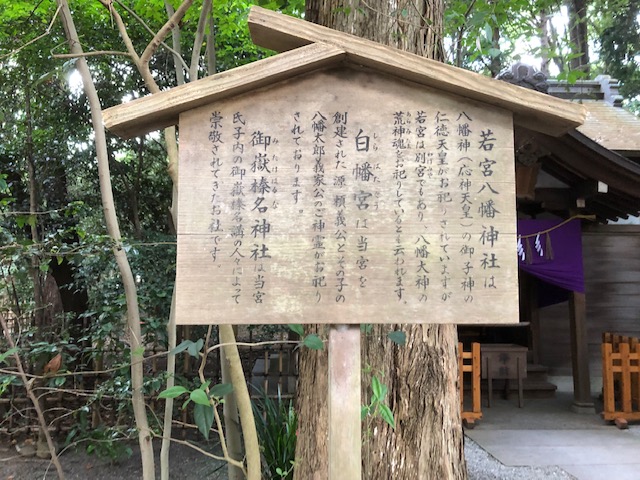 若宮八幡神社は
八幡神（応神天皇）の御子神の
仁徳天皇がお祀りされていますが
若宮は別宮でもあり、八幡大神の
荒神魂をお祀りしているとも云われます。
白幡宮は当宮を
創建された源頼義公とその子の
八幡太郎義家公のご神霊がお祀り
されております。
御嶽榛名神社は当宮
氏子内の御嶽榛名講の人々によって
崇敬されてきたお社です。